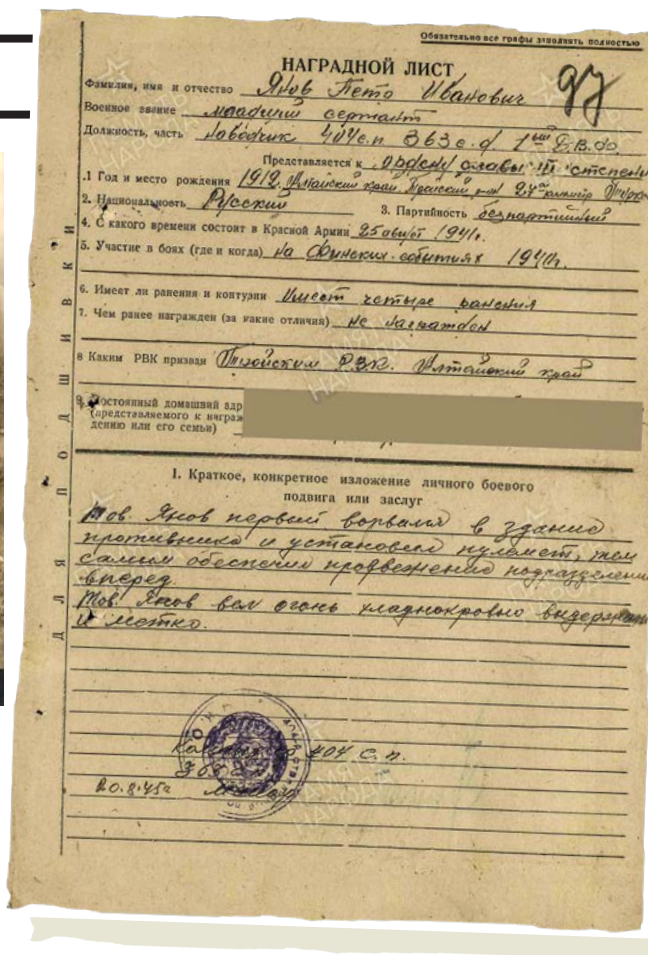 Обязательно все графы заполнять полностью
97
НАГРАДНОЙ ЛИСТ
Фамилия, имя и отчество Янов Петр Иванович
Военное звание младший сержант
Должность, часть наводчик 404 с.п. 363 с.д. 1
Представляется к ордену славы III степени
.1 Год и место рождения 1912. Алтайский край
2. Национальность Русский 3. Партийность безпартийный
4. С какого времени состоит в Красной Армии 25 август 1941г.
5. Участие в боях (где и когда) на Финских событиях 1940г.
6. Имеет ли ранения и контузии Имеет четыре ранения
7. Чем ранее награжден (за какие отличия) не награжден
8 Каким РВК призван РВК. Алтайский край
9. Постоянный домашний адр
(представляемого к награж
дению или его семьи)
ДЛЯ ПОДШИВКИ
I. Краткое, конкретное изложение личного боевого
подвига или заслуг
Тов. Янов первый ворвался в здание
противника и установил пулемет, тем
самым обеспечил продвежение подразделении
вперед.
Тов. Янов вел огонь хладнокровно выдержанно
и метко.
404 с.п.
20.8.45г
ПАМЯТЬ НАРОДА